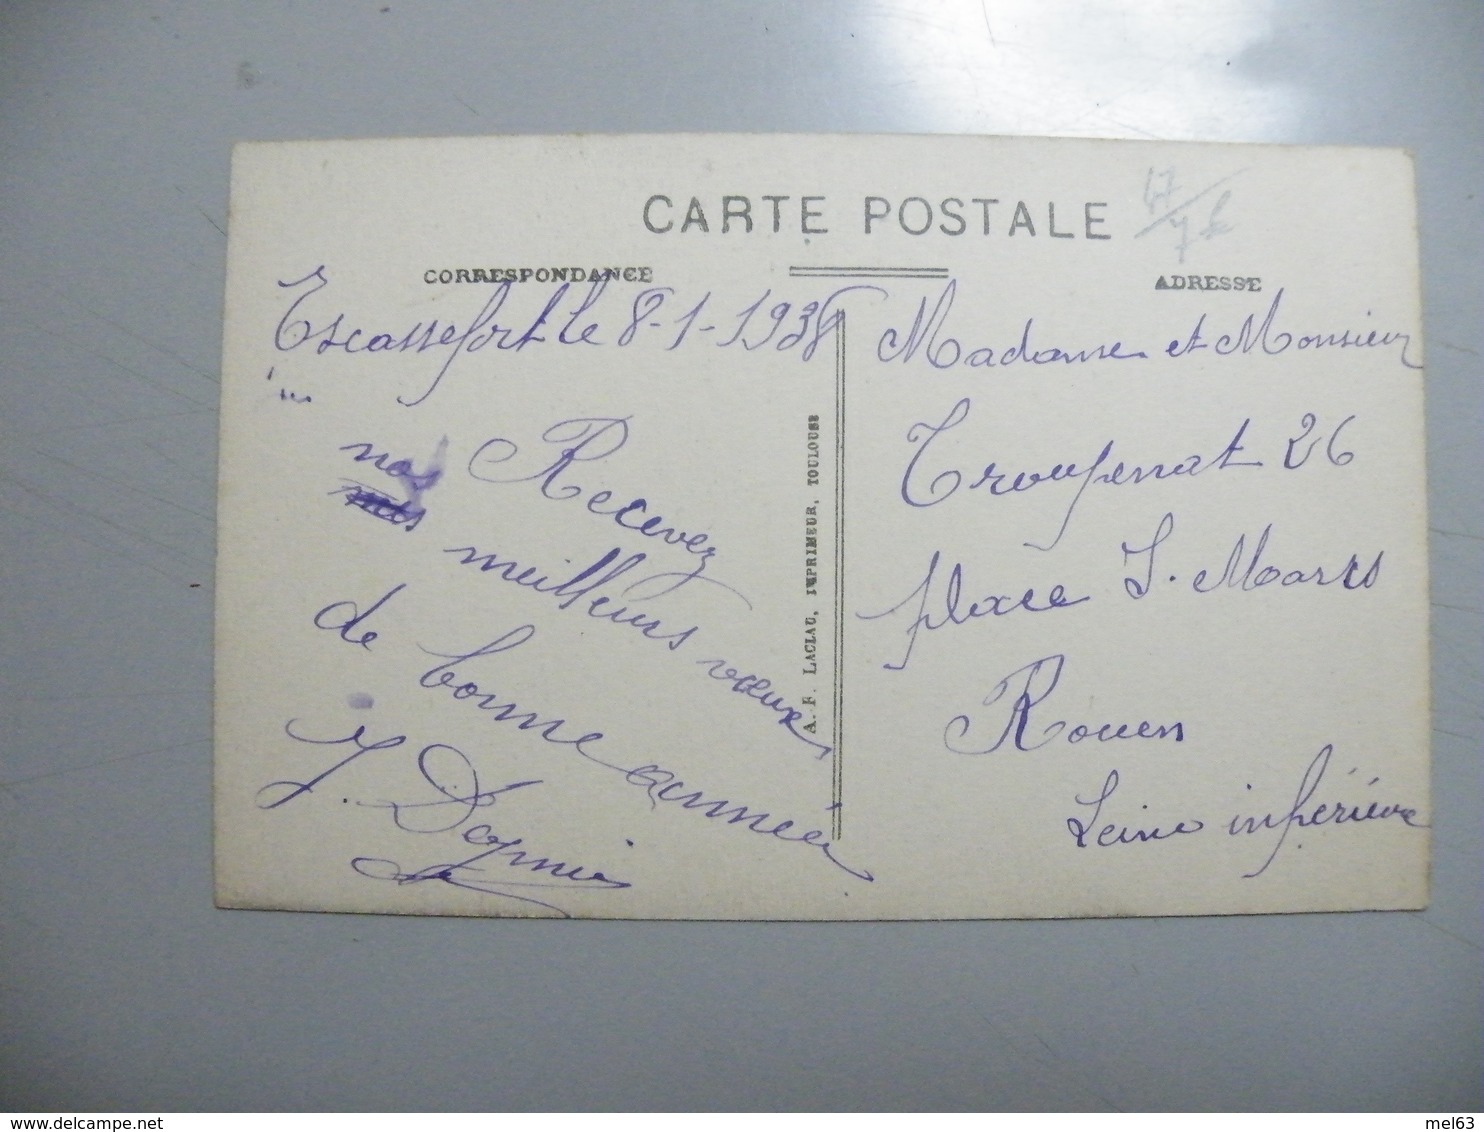 CARTE POSTALE
CORRESPONDANCE
ADRESSE
Escassefort le 8-1-1938
Recevez
nos
meilleurs vœux
de bonne année
J.
A. F. LACLAU, IMPRIMEUR, TOULOUSE
Madame et Monsieur
Troupenat 26
place S. Marcs
Rouen
Seine inférieure
47
delcampe.net
mel63